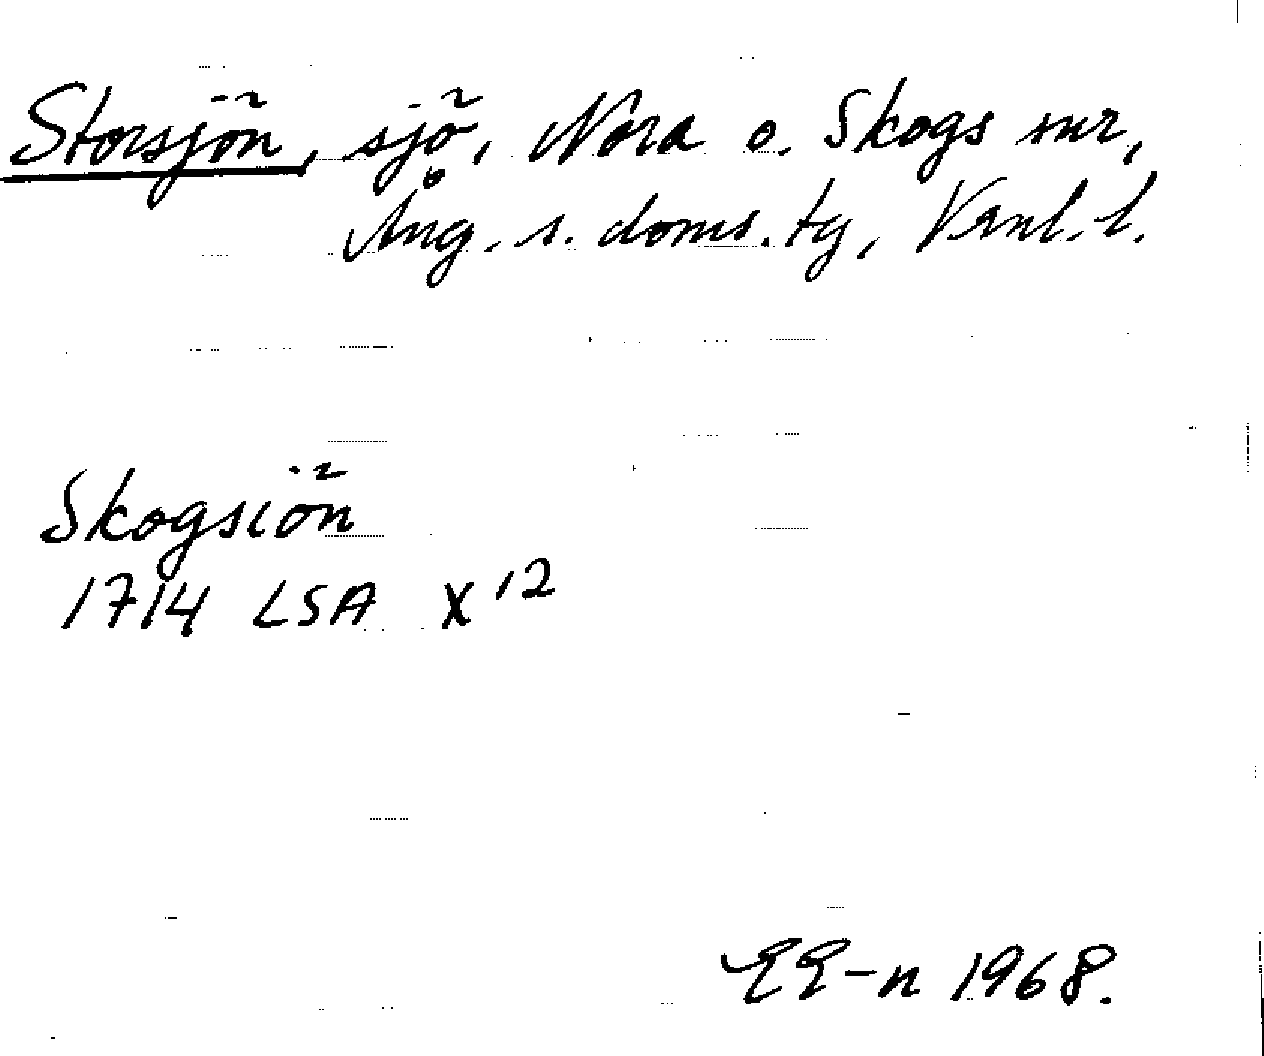 Storsjön, sjö, Nora o. Skogs snr,
Ång. s. doms. tg, Vrnl. l.
Skogsiön
1714 LSA X 12
EE-n 1968.